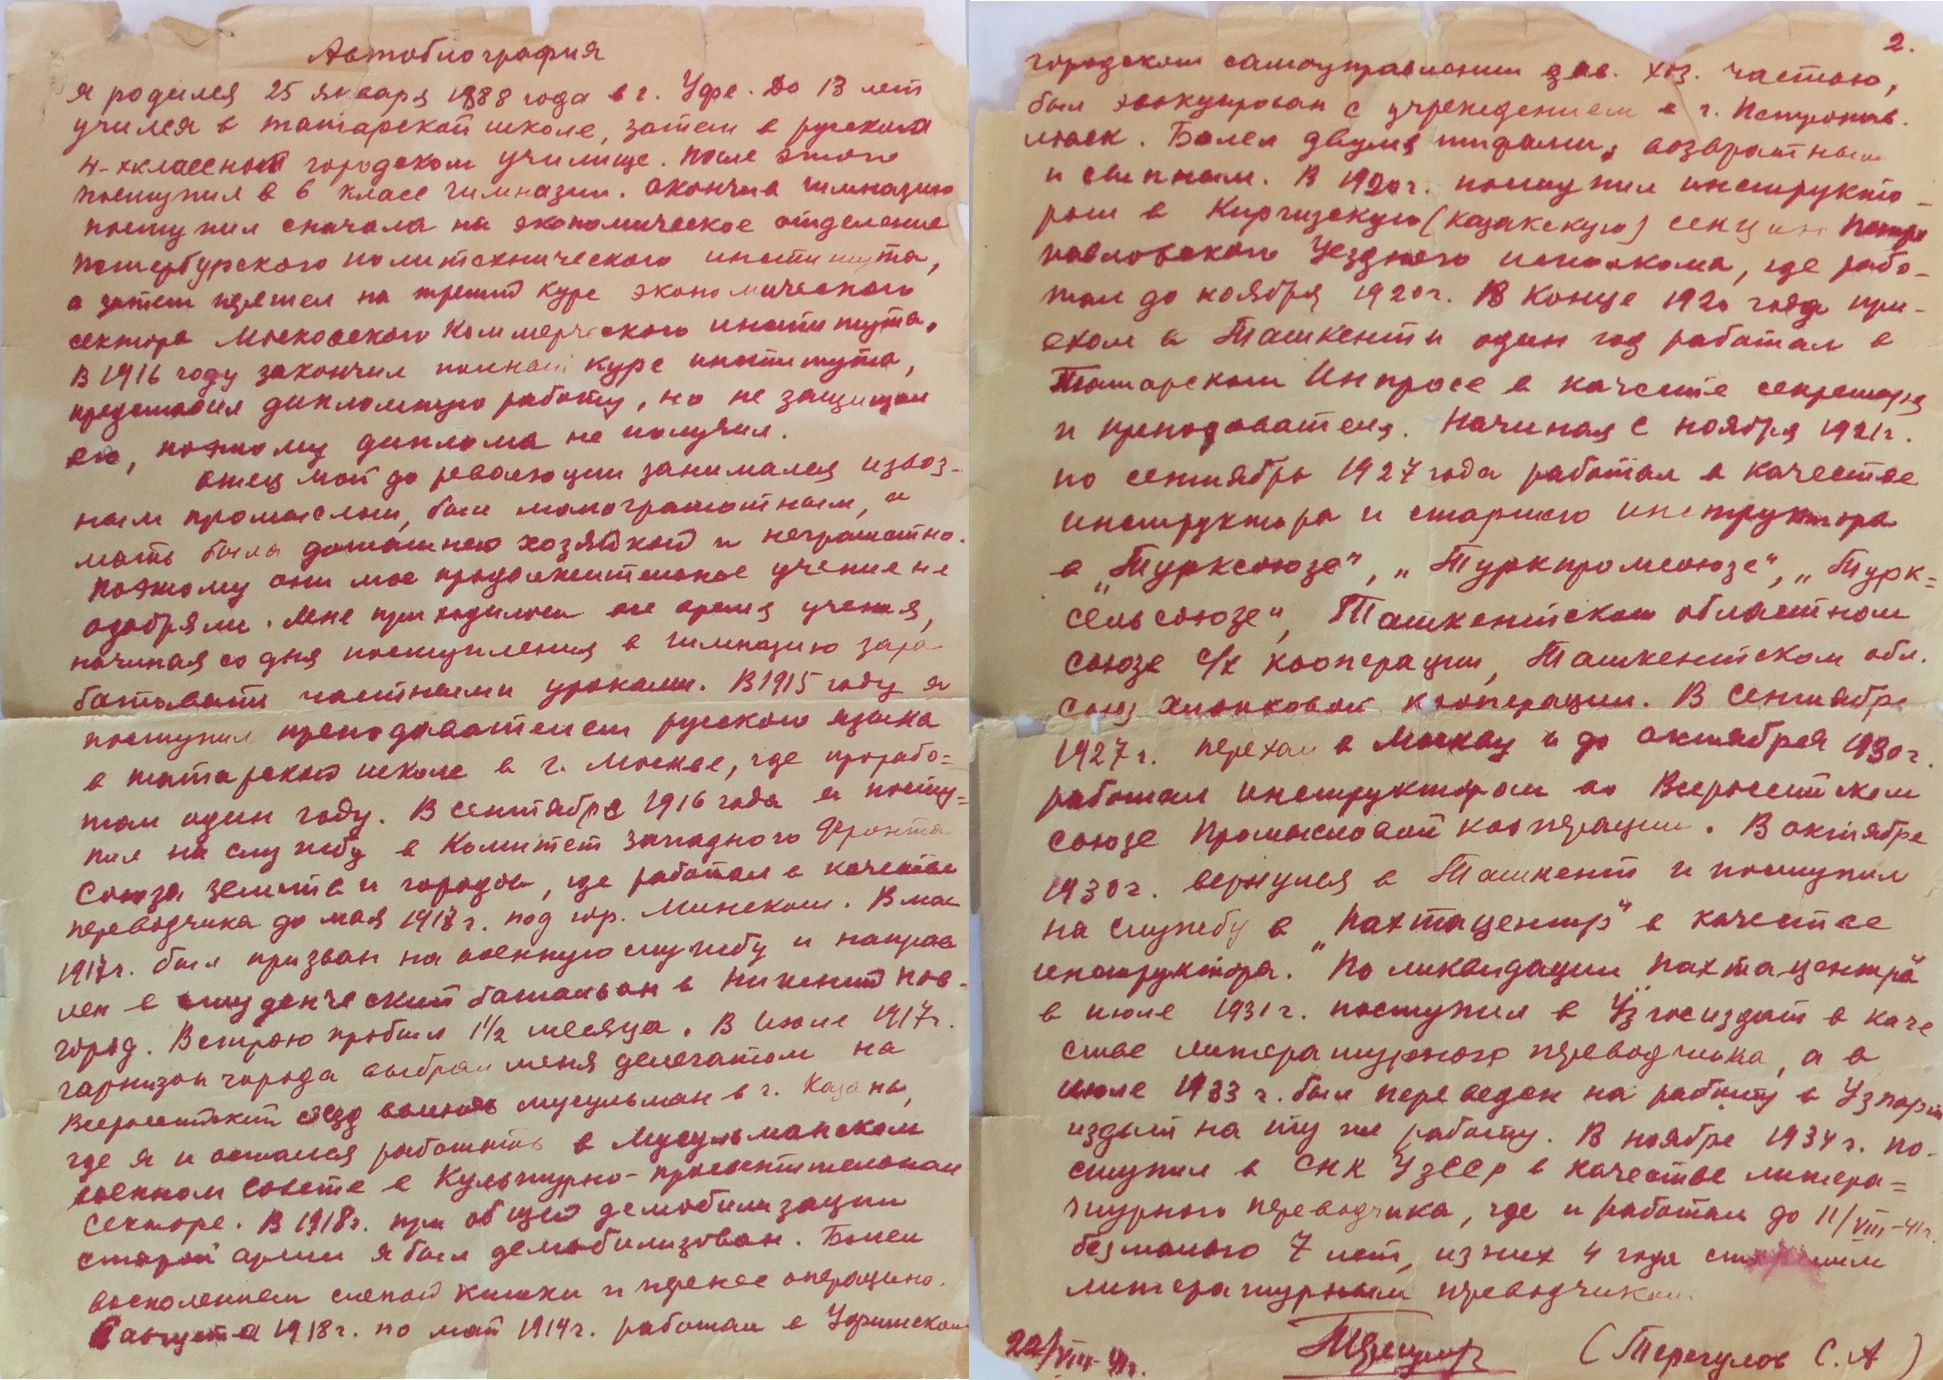 Автобиография
Я родился 25 января 1888 года в г. Уфе. До 13 лет
учился в татарской школе, затем в русском
4-хклассном городском училище. После этого
поступил в 6 класс гимназии. Окончив гимназию
поступил сначала на экономическое отделение
Петербургского политехнического института,
а затем перешел на третий курс экономического
сектора Московского Коммерческого института.
В 1916 году закончил полный курс института,
представил дипломную работу, но не защищал
ее, поэтому диплома не получил.
Отец мой до революции занимался извоз-
ным промыслом, был малограмотным, а
мать была домашней хозяйкой и неграмотна.
Поэтому они мое продолжительное учение не
одобряли. Мне приходилось во время учения,
начиная со дня поступления в гимназию зара-
батывать частными уроками. В 1915 году я
поступил преподавателем русского языка
в татарской школе в г. Москве, где прорабо=
тал один году. В сентябре 1916 года я посту=
пил на службу в Комитет западного фронта
Союза земств и городов, где работал в качестве
переводчика до мая 1917г. под гор. Минском. В мае
1917г. был призван на военную службу и направ
лен в студенческий батальон в Нижний Нов-
город. В строю пробыл 1½ месяца. В июле 1917г.
гарнизон города выбрал меня делегатом на
Всероссийский съезд воинов мусульман в г. Казань,
где я и остался работать в Мусульманском
военном совете в Культурно-просветительном
секторе. В 1918г. при общей демобилизации
старой армии я был демобилизован. Болел
воспалением слепой кишки и перенес операцию.
С августа 1918г. по май 1919г. работал в Уфимском
2.
городском самоуправлении зав. хоз. частью,
был эвакуирован с учреждением в г. Петропав.
ловск. Болел двумя тифами, возвратным
и сыпным. В 1920г. поступил инструкто-
ром в Киргизскую (казакскую) секцию Петро
павловского Уездного исполкома, где рабо-
тал до ноября 1920г. В конце 1920 года при-
ехал в Ташкент и один год работал в
Татарском Инпросе в качестве секретаря
и преподавателя. Начиная с ноября 1921г.
по сентябрь 1927 года работал в качестве
инструктора и старшего инструктора
в „Турксоюзе“, „Туркпромсоюзе“, „Турк=
сельсоюзе“, Ташкентском областном
союзе с/х кооперации, Ташкентском обл.
союз хлопковой кооперации. В сентябре
1927г. переехал в Москву и до октября 1930г.
работал инструктором во Всероссийском
союзе Промысловой кооперации. В октябре
1930г. вернулся в Ташкент и поступил
на службу в „Пахтацентр“ в качестве
инструктора. По ликвидации „Пахтацентра“
в июле 1931г. поступил в Узгосиздат в каче
стве литературного переводчика, а в
июле 1933 г. был переведен на работу в Узпарт
издат на ту же работу. В ноябре 1934г. по-
ступил в СНК УзССР в качестве литера=
турного переводчика, где и работал до 11/VIII-41г.
без малого 7 лет, из них 4 года старшим
литературным переводчиком.
22/VIII-41г. (Терегулов С.А)